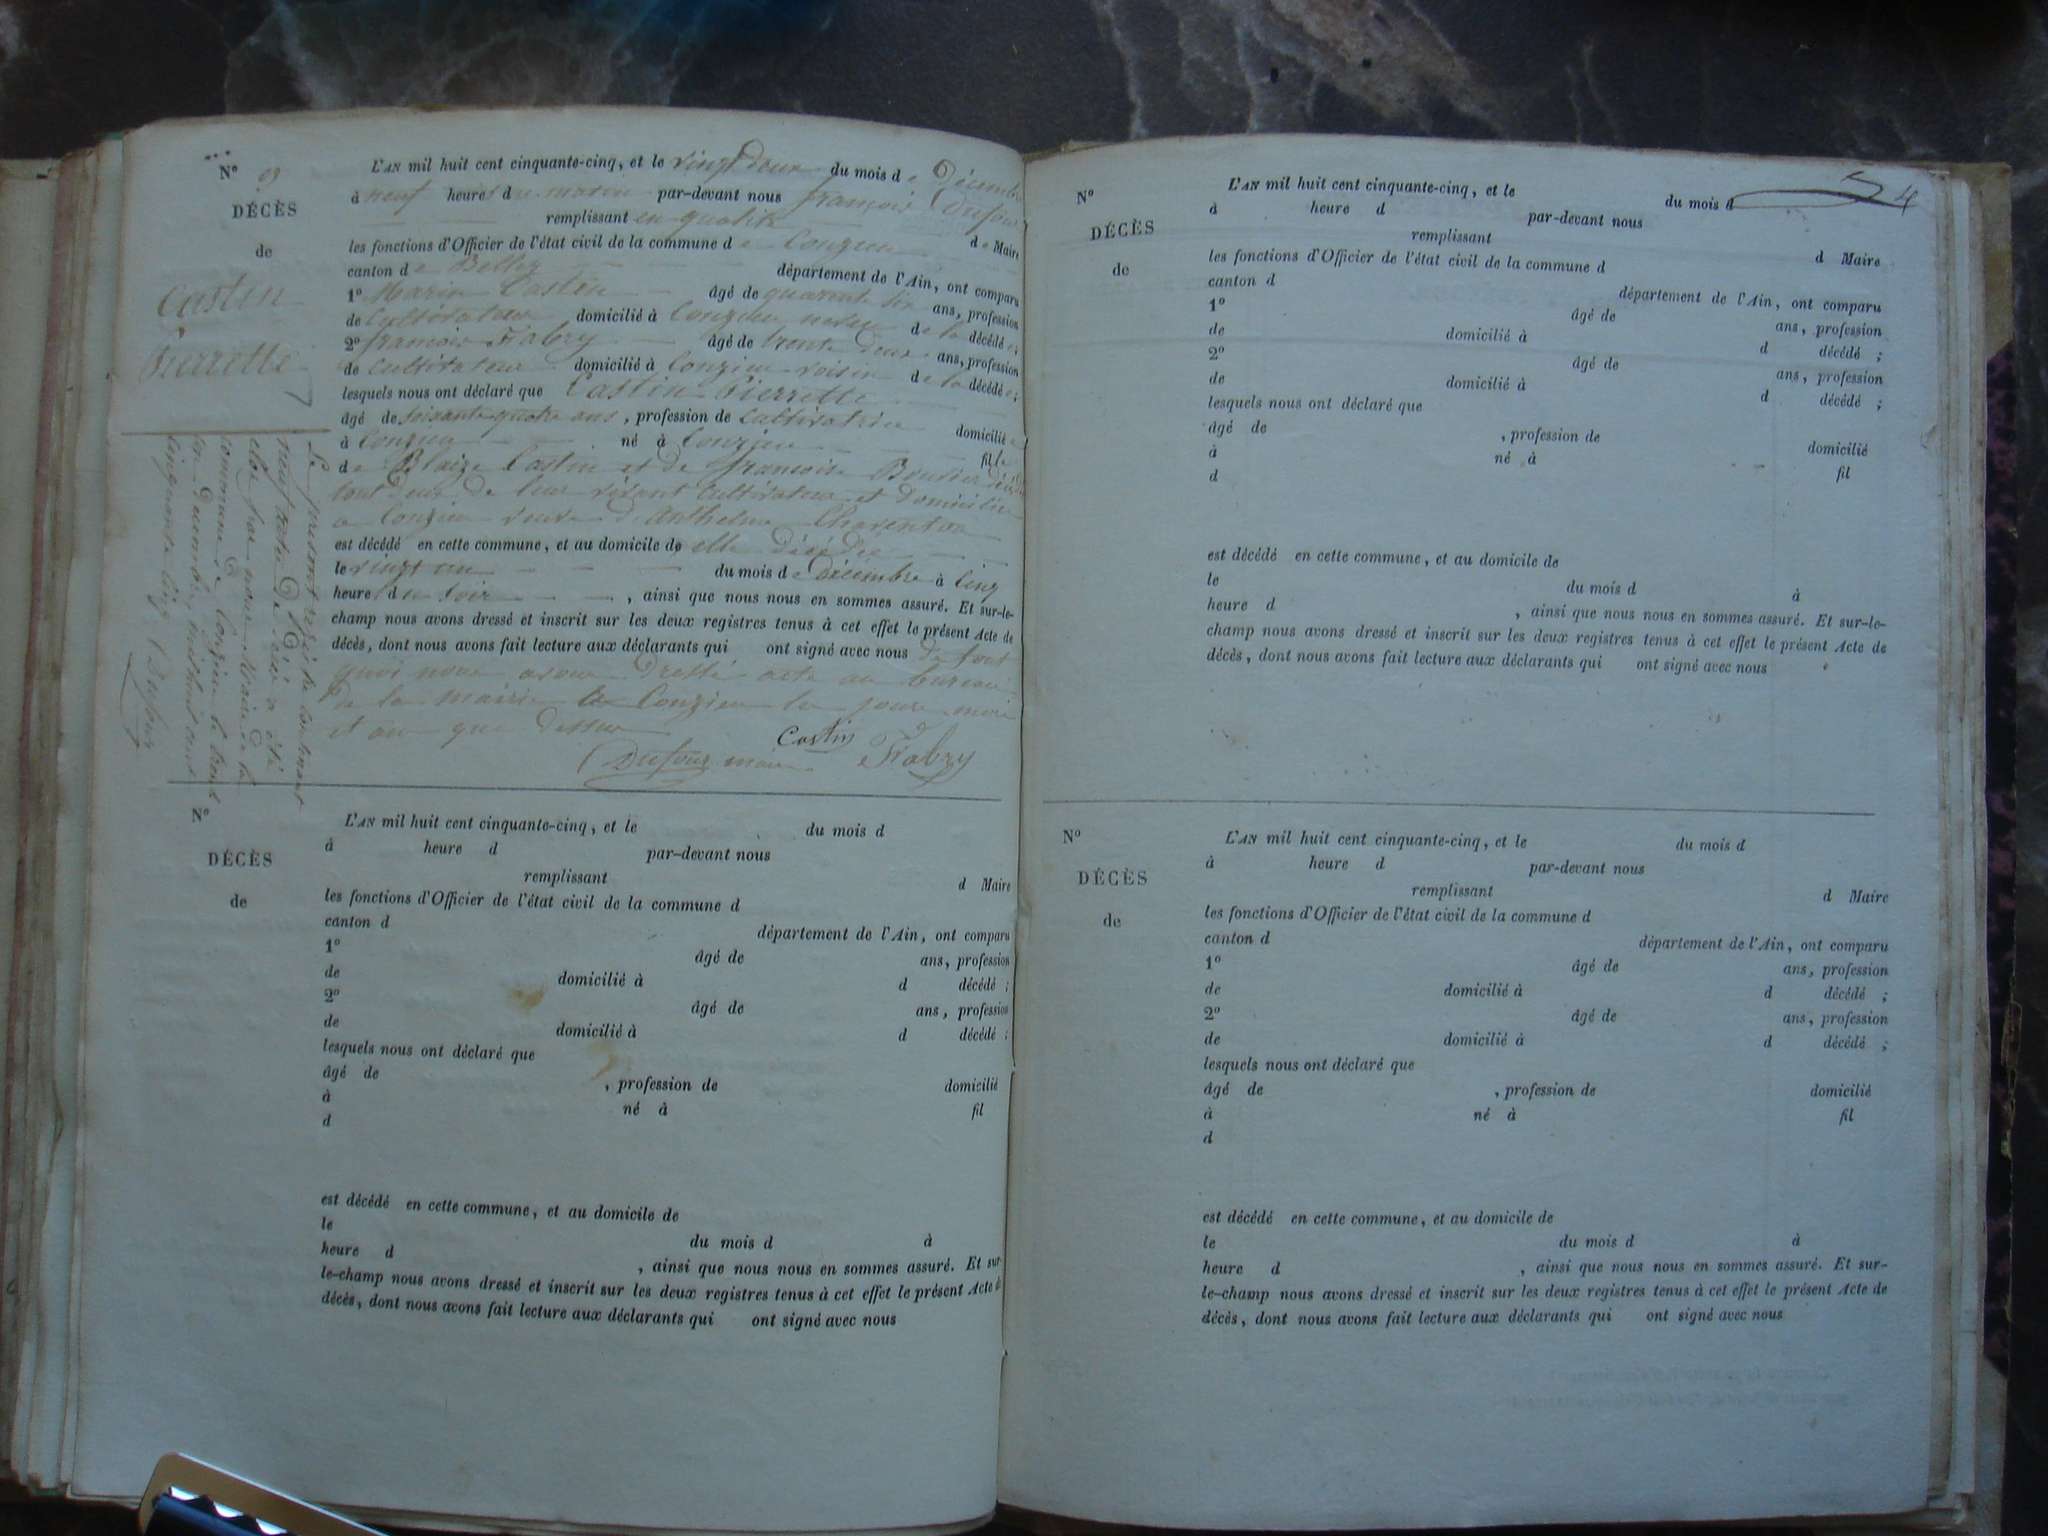 N° 09
DÉCÈS
de
Castin
Pierrette
L'AN mil huit cent cinquante-cinq, et le vingt deux du mois de Décembre
à neuf heures du matin par-devant nous françois Dufour
remplissant en qualité de Maire
les fonctions d'Officier de l'état civil de la commune de Conzieu
canton de Belley département de l'Ain, ont comparu
1° Marin Castin âgé de quarente six ans, profession
de Cultivateur domicilié à Conzieu neveu de la décédée;
2° françois Fabry âgé de trente deux ans, profession
de cultivateur domicilié à Conzieu voisin de la décédée;
lesquels nous ont déclaré que Castin Pierrette
âgé de soixante quatre ans, profession de Cultivatrice domicilié
à Conzieu né à Conzieu fille
de Blaize Castin et de françoise
tout deux de leur vivant Cultivateur et domicilié
a Conzieu veuve d'Anthelme Charenton
est décédé en cette commune, et au domicile de elle décédée
le vingt un du mois de Décembre à cinq
heure du soir, ainsi que nous nous en sommes assuré. Et sur-le-
champ nous avons dressé et inscrit sur les deux registres tenus à cet effet le présent Acte de
décès, dont nous avons fait lecture aux déclarants qui ont signé avec nous De tout
quoi nous avons Dressé acte au bureau
de la mairie de Conzieu les jour mois
et an que dessus
Castin
Dufour maire Fabry
Le présent registre contenant
neuf actes de Décès a été
clos par nous Maire de la
commune de Conzieu le trente
un décembre mil huit cent
cinquante cinq Dufour
N°
DÉCÈS
de
L'AN mil huit cent cinquante-cinq, et le du mois d
à heure d par-devant nous
remplissant d Maire
les fonctions d'Officier de l'état civil de la commune d
canton d département de l'Ain, ont comparu
1° âgé de ans, profession
de domicilié à d décédé ;
2° âgé de ans, profession
de domicilié à d décédé ;
lesquels nous ont déclaré que
âgé de , profession de domicilié
à né à fil
d
est décédé en cette commune, et au domicile de
le du mois d à
heure d , ainsi que nous nous en sommes assuré. Et sur-
le-champ nous avons dressé et inscrit sur les deux registres tenus à cet effet le présent Acte de
décès, dont nous avons fait lecture aux déclarants qui ont signé avec nous
4
N°
DÉCÈS
de
L'AN mil huit cent cinquante-cinq, et le du mois d
à heure d par-devant nous
remplissant d Maire
les fonctions d'Officier de l'état civil de la commune d
canton d département de l'Ain, ont comparu
1° âgé de ans, profession
de domicilié à d décédé ;
2° âgé de ans, profession
de domicilié à d décédé ;
lesquels nous ont déclaré que
âgé de , profession de domicilié
à né à fil
d
est décédé en cette commune, et au domicile de
le du mois d à
heure d , ainsi que nous nous en sommes assuré. Et sur-le-
champ nous avons dressé et inscrit sur les deux registres tenus à cet effet le présent Acte de
décès, dont nous avons fait lecture aux déclarants qui ont signé avec nous
N°
DÉCÈS
de
L'AN mil huit cent cinquante-cinq, et le du mois d
à heure d par-devant nous
remplissant d Maire
les fonctions d'Officier de l'état civil de la commune d
canton d département de l'Ain, ont comparu
1° âgé de ans, profession
de domicilié à d décédé ;
2° âgé de ans, profession
de domicilié à d décédé ;
lesquels nous ont déclaré que
âgé de , profession de domicilié
à né à fil
d
est décédé en cette commune, et au domicile de
le du mois d à
heure d , ainsi que nous nous en sommes assuré. Et sur-
le-champ nous avons dressé et inscrit sur les deux registres tenus à cet effet le présent Acte de
décès, dont nous avons fait lecture aux déclarants qui ont signé avec nous